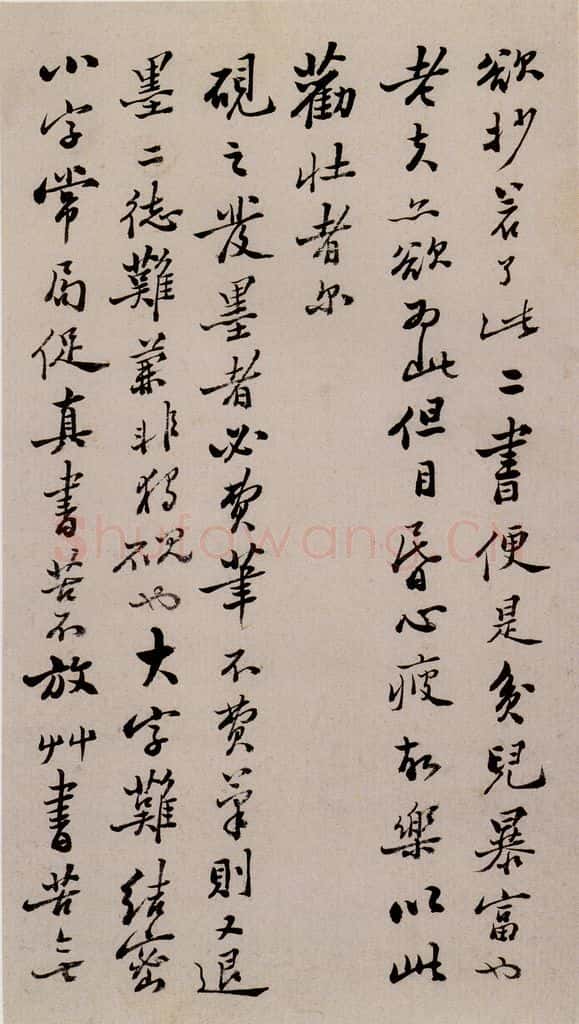 欲抄若了此二書便是貧兒暴富也
老夫亦欲為此但目昏心疲故樂以此
勸壯者尔
硯之發墨者必費筆不費筆則又退
墨二德難兼非獨硯也大字難結密
小字常局促真書苦不放艸書苦無
Shufawang.CN